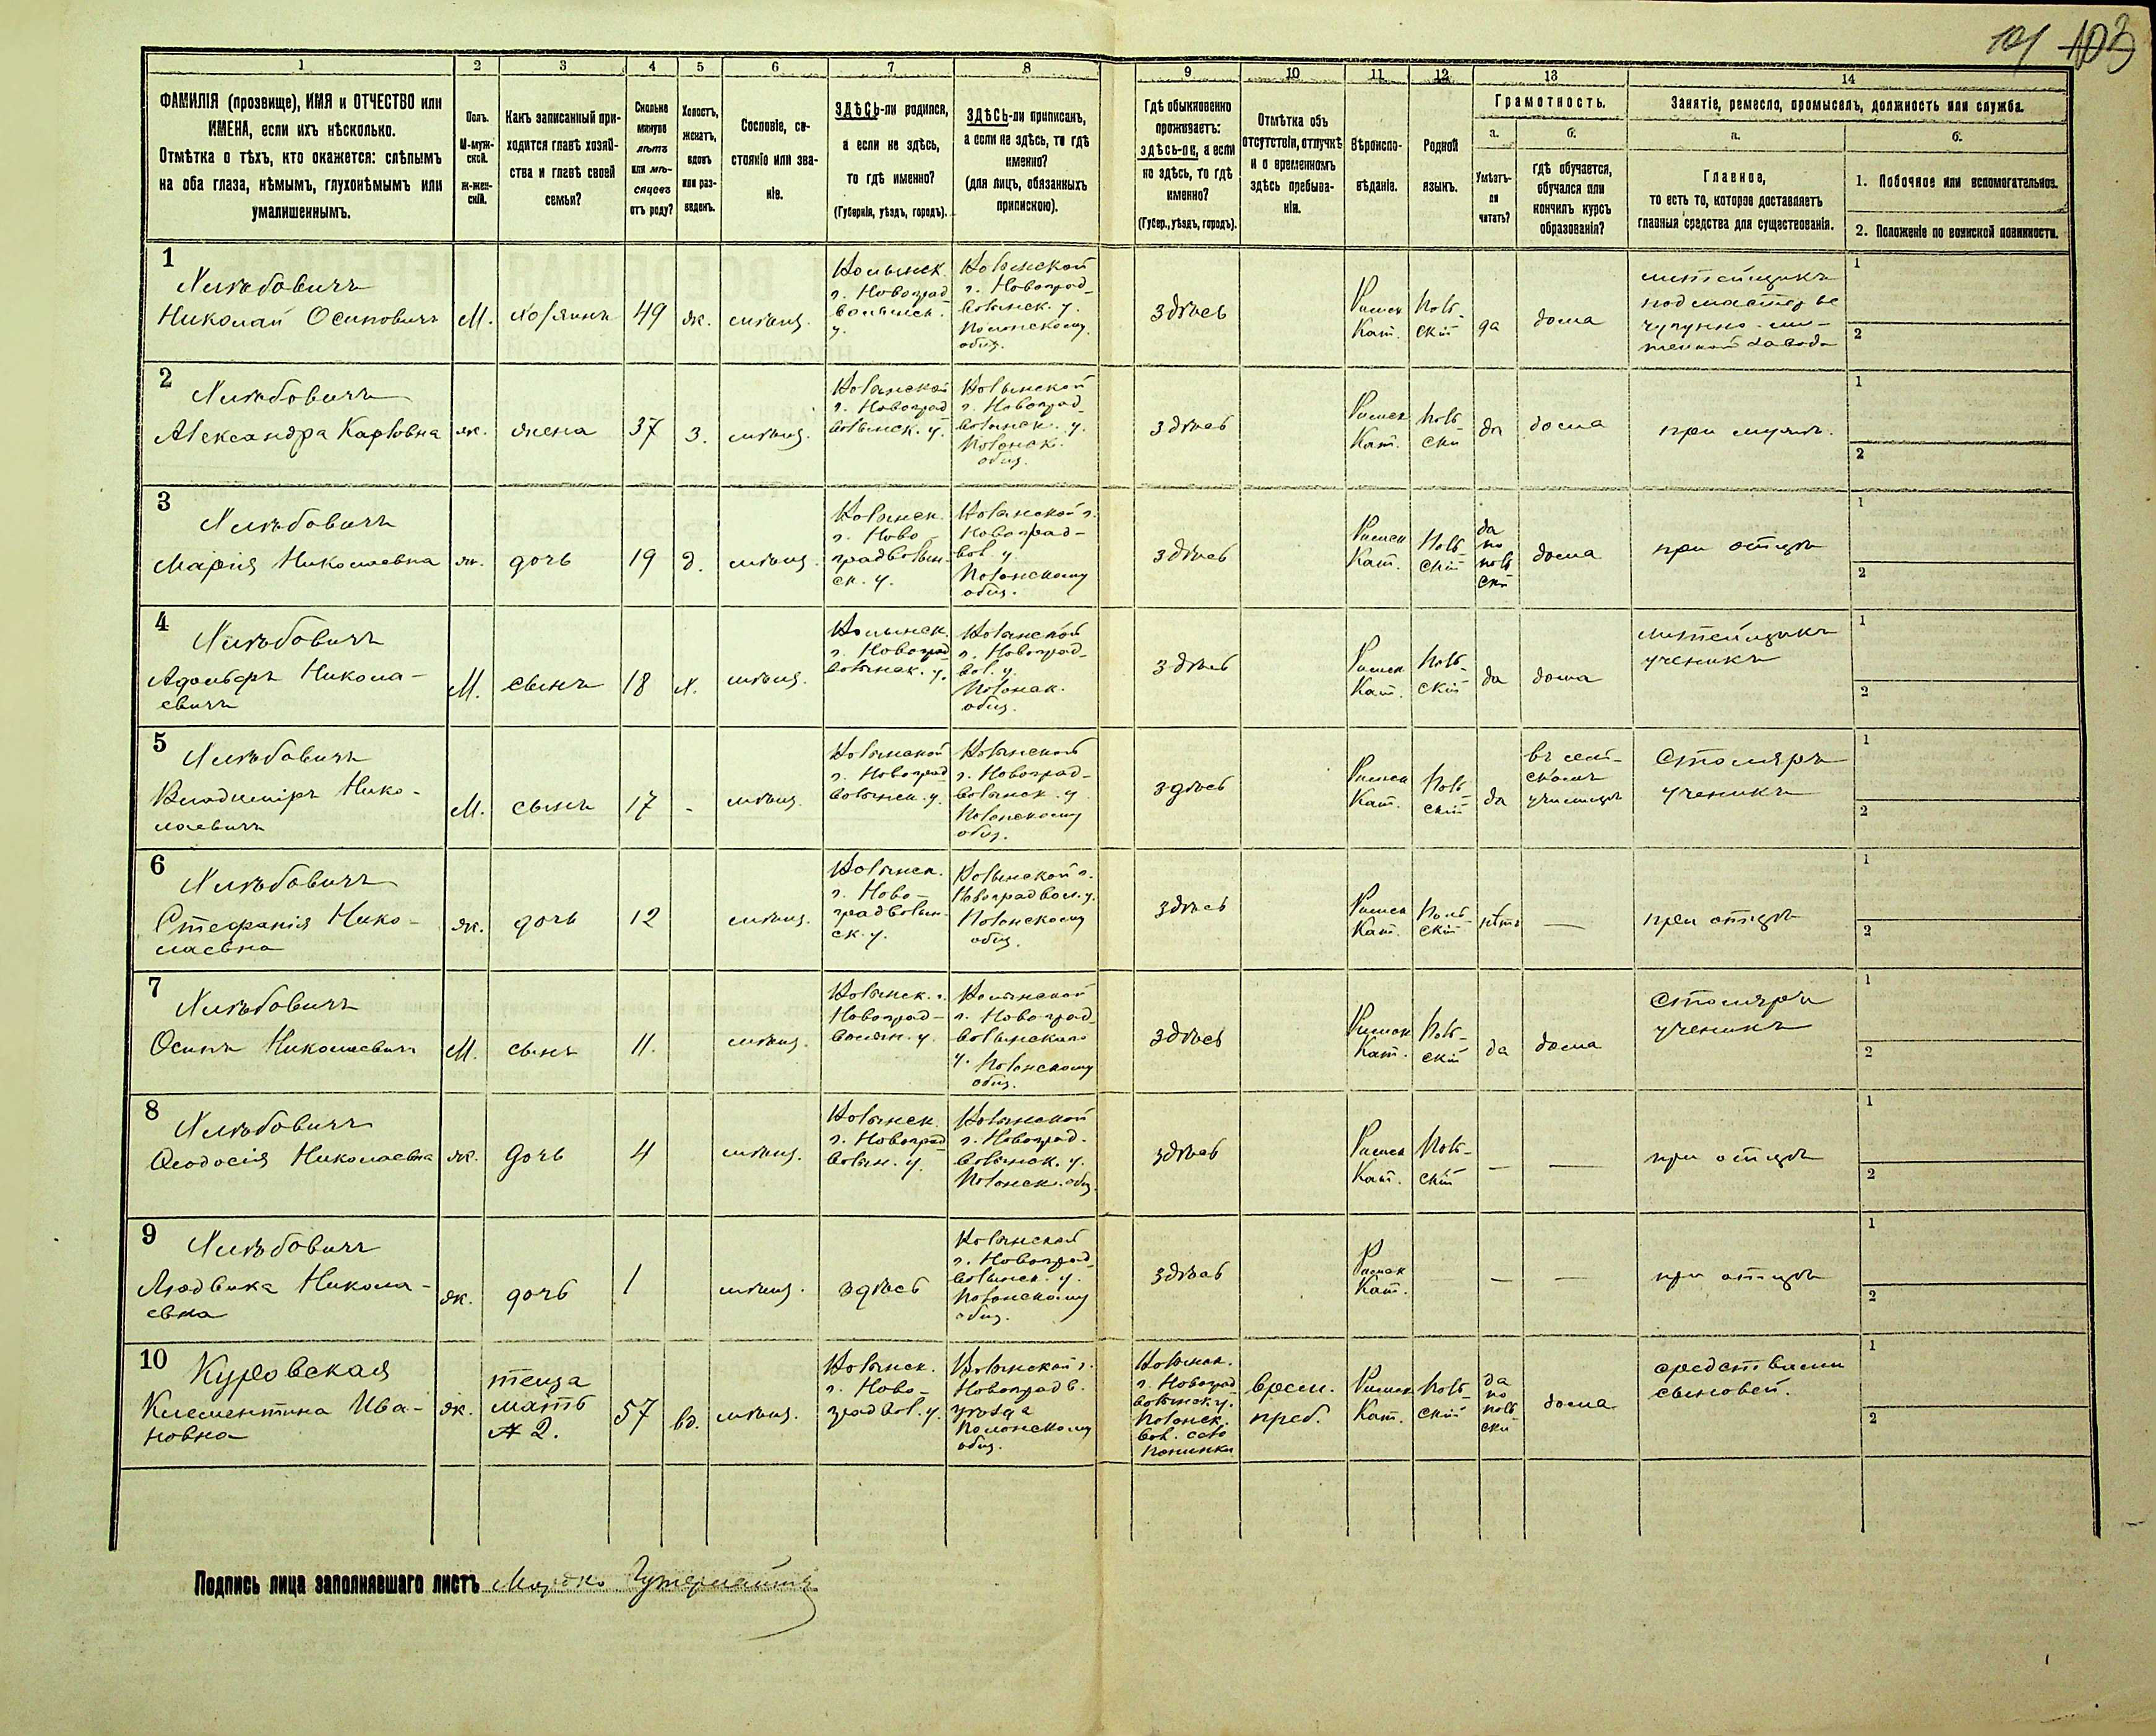 101 103
1 2 3 4 5 6 7 8 9 10 11 12 13 14
ФАМИЛІЯ (прозвище), ИМЯ и ОТЧЕСТВО или
ИМЕНА, если ихъ нѣсколько.
Отмѣтка о тѣхъ, кто окажется: слѣпымъ
на оба глаза, нѣмымъ, глухонѣмымъ или
умалишеннымъ.
Полъ.
М-муж-
ской.
Ж-жен-
скій.
Какъ записанный при-
ходится главѣ хозяй-
ства и главѣ своей
семьи?
Сколько
минуло
лѣтъ
или мѣ-
сяцевъ
отъ роду?
Холостъ,
женатъ,
вдовъ
или раз-
веденъ.
Сословіе, со-
стояніе или зва-
ніе.
ЗДѢСЬ-ли родился,
а если не здѣсь,
то гдѣ именно?
(Губернія, уѣздъ, городъ).
ЗДѢСЬ-ли приписанъ,
а если не здѣсь, то гдѣ
именно?
(для лицъ, обязанныхъ
припискою).
Гдѣ обыкновенно
проживаетъ:
здѣсь-ли, а если
не здѣсь, то гдѣ
именно?
(Губер., уѣздъ, городъ).
Отмѣтка объ
отсутствіи, отлучкѣ
и о временномъ
здѣсь пребыва-
ніи.
Вѣроиспо-
вѣданіе.
Родной
языкъ.
Грамотность.
а.
Умѣетъ-
ли
читать?
б.
гдѣ обучается,
обучался или
кончилъ курсъ
образованія?
Занятіе, ремесло, промыселъ, должность или служба.
а.
Главное,
то есть то, которое доставляетъ
главныя средства для существованія.
б.
1. Побочное или вспомогательное.
2. Положеніе по воинской повинности.
1
Николай Осиповичъ
М.
хозяинъ
49
ж.
мѣщ.
Волынск.
г. Новоград
волынск.
у.
Волынской
г. Новоград-
волынск. у.
Полонскому
общ.
здѣсь
Римск
Кат.
Поль-
скій
да
дома
литейщикъ
1
2
2
Александра Карловна
ж.
жена
37
з.
мѣщ.
Волынской
г. Новоград
волынск. у.
Волынской
г. Новоград-
волынск. у.
Полонск.
общ.
здѣсь
Римск
Кат.
Поль-
скій
да
дома
при мужѣ.
1
2
3
Марія Николаевна
ж.
дочь
19
д.
мѣщ.
Волынск.
г. Ново-
градволын-
ск. у.
Волынской г.
Новоград-
вол. у.
Полонскому
общ.
здѣсь
Римск
Кат.
Поль-
скій
да
по
поль
ски
дома
при отцѣ
1
2
4
Адольфъ Никола-
евичъ
М.
сынъ
18
х.
мѣщ.
Волынск.
г. Новоград
волынск. у.
Волынской
г. Новоград-
вол. у.
Полонск.
общ.
здѣсь
Римск
Кат.
Поль-
скій
да
дома
литейщикъ
ученикъ
1
2
5
Владиміръ Нико-
лаевичъ
М.
сынъ
17
-
мѣщ.
Волынской
г. Новоград
волынск. у.
Волынской
г. Новоград-
волынск. у
Полонскому
общ.
здѣсь
Римск
Кат.
Поль-
скій
да
въ сель-
скомъ
училищѣ
Столяръ
ученикъ
1
2
6
Стефанія Нико-
лаевна
ж.
дочь
12
мѣщ.
Волынск.
г. Ново-
градволын-
ск. у.
Волынской г.
Новоградвол. у.
Полонскому
общ.
здѣсь
Римск
Кат.
Поль-
скій
нѣтъ
—
при отцѣ
1
2
7
Осипъ Николаевичъ
М.
сынъ
11.
мѣщ.
Волынск. г.
Новоград-
волын. у.
Волынской
г. Новоград
волынскаго
у. Полонскому
общ.
здѣсь
Римск
Кат.
Поль-
скій
да
дома
Столяръ
ученикъ
1
2
8
Ѳеодосія Николаевна
ж.
дочь
4
мѣщ.
Волынск
г. Новоград
волын. у.
Волынской
г. Новоград-
волынск. у.
Полонск. общ.
здѣсь
Римск
Кат.
Поль-
скій
—
—
при отцѣ
1
2
9
Людвика Никола-
евна
ж.
дочь
1
мѣщ.
здѣсь
Волынской
г. Новоград
волынск. у.
Полонскому
общ.
здѣсь
Римск
Кат.
—
—
при отцѣ
1
2
10
Куровская
Клементина Ива-
новна
ж.
теща
мать
№ 2.
57
вд.
мѣщ.
Волынск.
г. Ново-
градвол. у.
Волынской г.
Новоградв.
уѣзда
Полонскому
общ.
Волынск.
г. Новоград
волынск. у.
Полонск.
вол. село
Понинки
врем.
преб.
Римск
Кат.
Поль-
скій
да
по
поль
ски
дома
средствами
сыновей.
1
2
Подпись лица заполнявшаго листъ